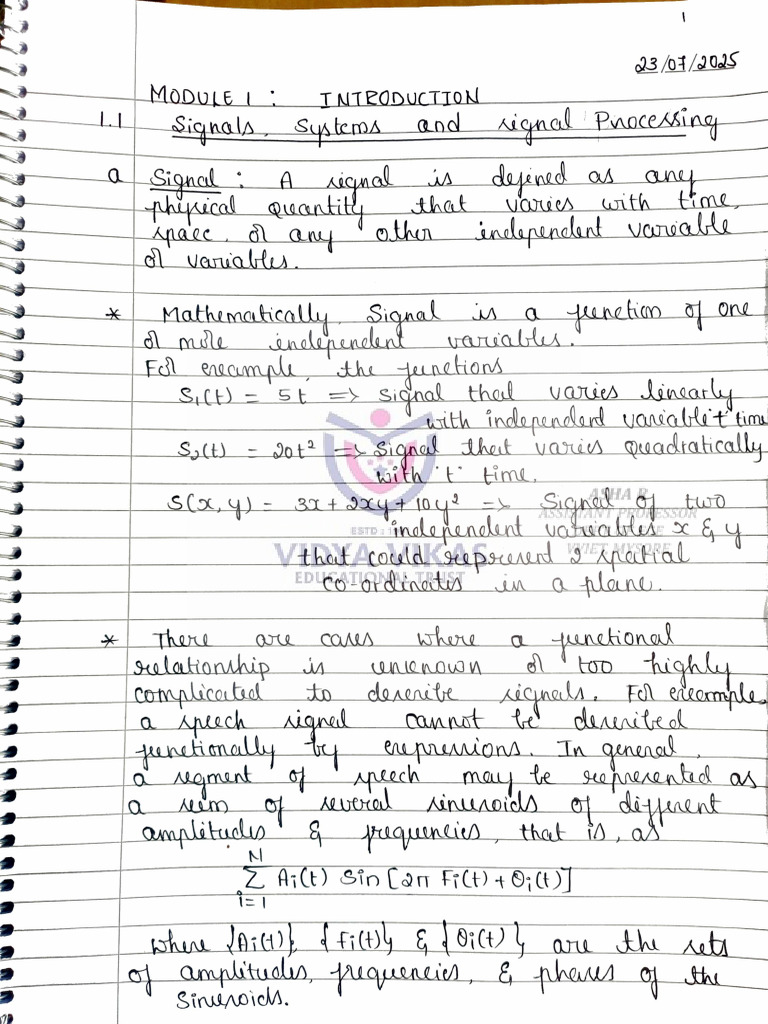 1
23/07/2025
MODULE 1 : INTRODUCTION
1.1 Signals, Systems and signal Processing
a Signal : A signal is defined as any
physical quantity that varies with time,
space, or any other independent variable
or variables.
* Mathematically, Signal is a function of one
or more independent variables.
For example, the functions
S₁(t) = 5t => Signal that varies linearly
with independent variable 't' time
S₂(t) = 20t² => Signal that varies quadratically
with 't' time.
S(x,y) = 3x + 2xy + 10y² => Signal of two
independent variables x & y
that could represent 2 spatial
co-ordinates in a plane.
ASHA R
ASSISTANT PROFESSOR
VVIET MYSORE
ESTD : 1
VIDYA VIKAS
EDUCATIONAL TRUST
* There are cases where a functional
relationship is unknown or too highly
complicated to describe signals. For example,
a speech signal cannot be described
functionally by expressions. In general,
a segment of speech may be represented as
a sum of several sinusoids of different
amplitudes & frequencies, that is, as
N
∑ Ai(t) Sin [2π Fi(t) + Θi(t)]
i=1
where {Ai(t)}, {Fi(t)} & {Θi(t)}, are the sets
of amplitudes, frequencies, & phases of the
Sinusoids.